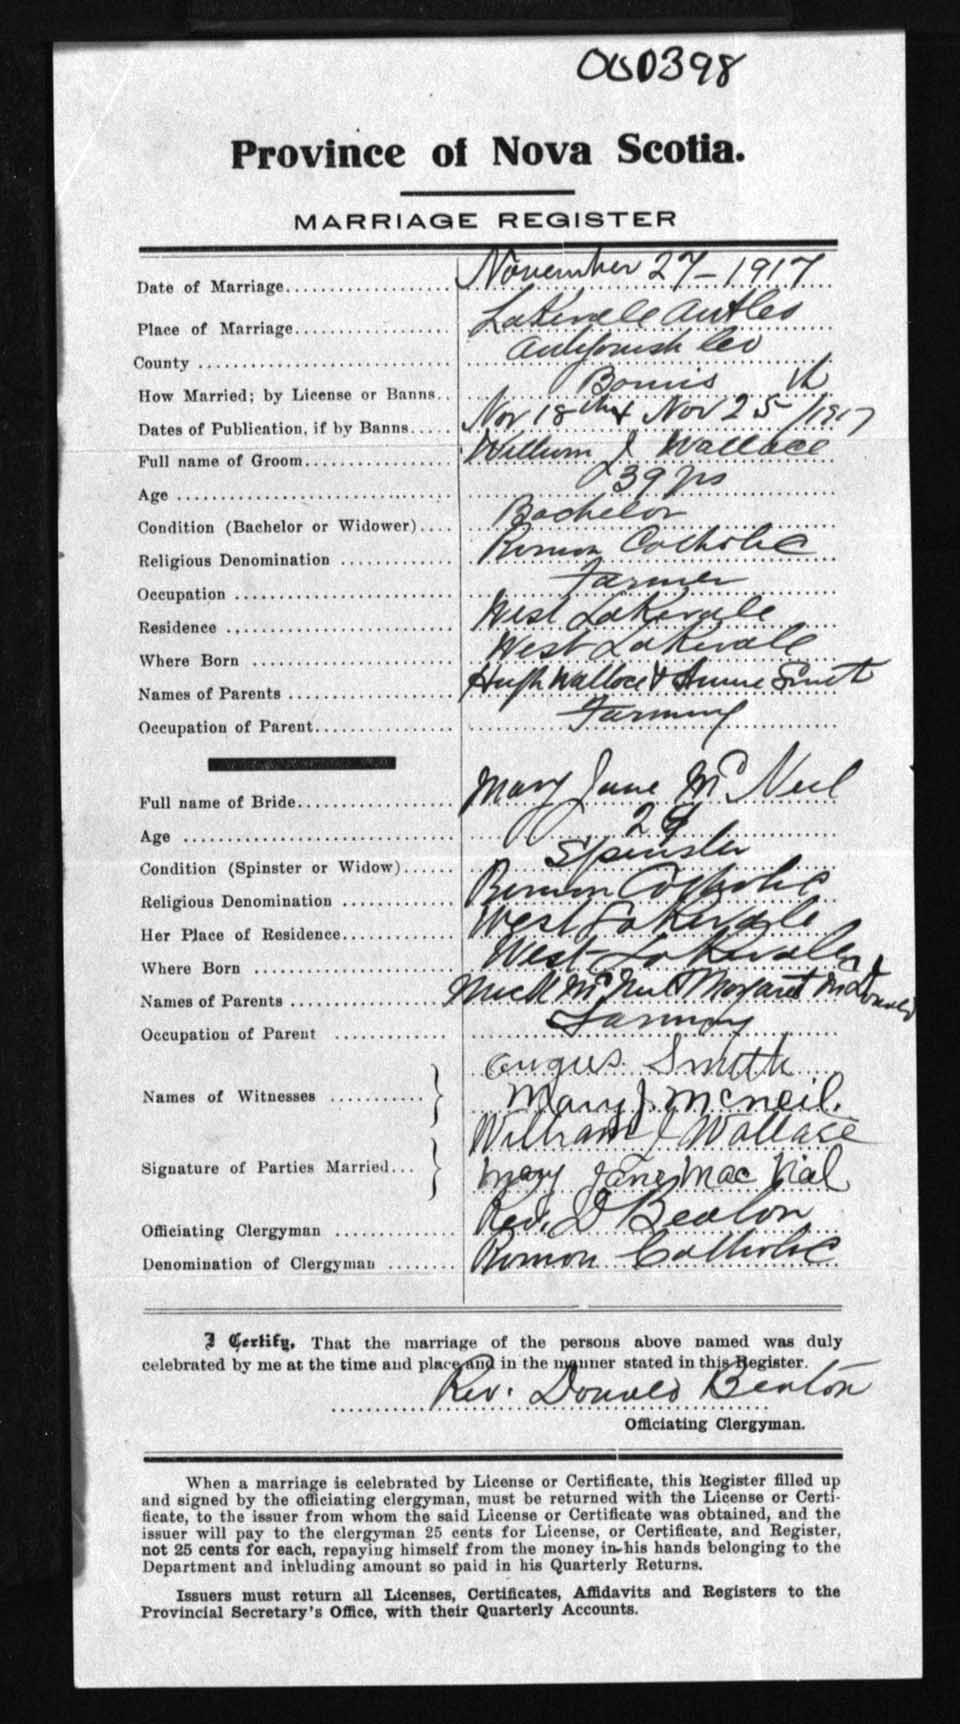 000398
Province of Nova Scotia.
MARRIAGE REGISTER
Date of Marriage................... November 27 - 1917
Place of Marriage.................. Lakevale
County ............................ Antigonish Co
How Married; by License or Banns.. Banns
Dates of Publication, if by Banns..... Nov 18th & Nov 25/1917
Full name of Groom................. William J Wallace
Age ............................... 39 yrs
Condition (Bachelor or Widower).... Bachelor
Religious Denomination ............ Roman Catholic
Occupation ........................ Farmer
Residence ......................... West Lakevale
Where Born ........................ West Lakevale
Names of Parents .................. Hugh Wallace & Annie Smit
Occupation of Parent............... Farming
Full name of Bride................. Mary Jane McNeil
Age ............................... 29
Condition (Spinster or Widow)...... Spinster
Religious Denomination ............ Roman Catholic
Her Place of Residence............. West Lakevale
Where Born ........................ West Lakevale
Names of Parents .................. McNeil & Margaret McDonald
Occupation of Parent .............. Farming
Names of Witnesses ........... } Angus Smith
Mary J. McNeil.
Signature of Parties Married... } William J Wallace
Mary Jane Mac Nial
Officiating Clergyman ............. Rev. D Beaton
Denomination of Clergyman ........ Roman Catholic
I Certify, That the marriage of the persons above named was duly
celebrated by me at the time and place and in the manner stated in this Register.
Rev. Donald Beaton
Officiating Clergyman.
When a marriage is celebrated by License or Certificate, this Register filled up
and signed by the officiating clergyman, must be returned with the License or Certi-
ficate, to the issuer from whom the said License or Certificate was obtained, and the
issuer will pay to the clergyman 25 cents for License, or Certificate, and Register,
not 25 cents for each, repaying himself from the money in his hands belonging to the
Department and including amount so paid in his Quarterly Returns.
Issuers must return all Licenses, Certificates, Affidavits and Registers to the
Provincial Secretary's Office, with their Quarterly Accounts.